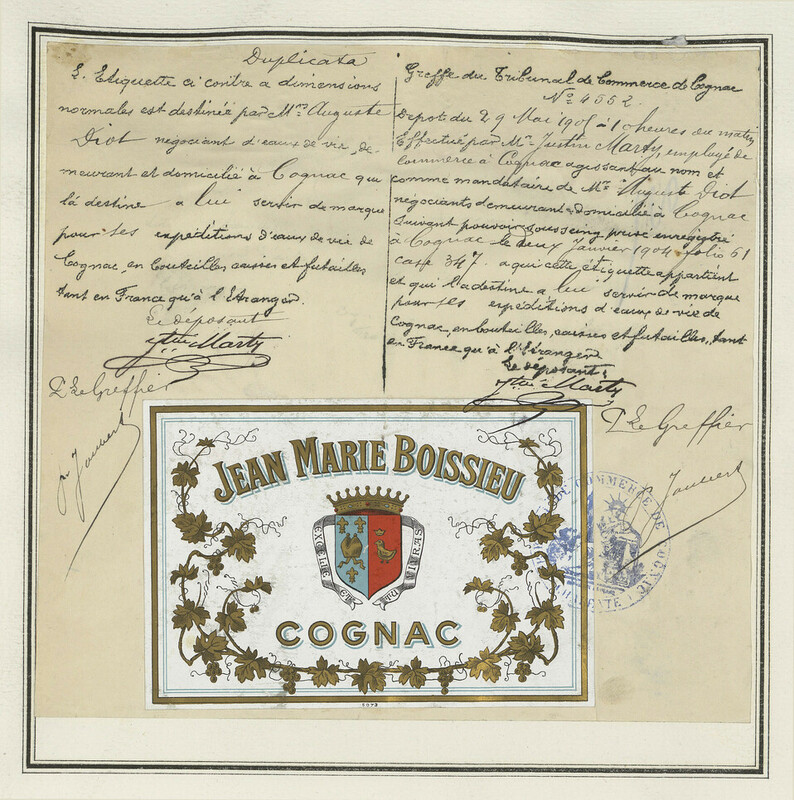 Duplicata
L. Etiquette ci contre a dimensions
normales est destinée par Mr Auguste
Diot négociant d'eaux de vie, de-
meurant et domicilié à Cognac qui
la destine a lui servir de marque
pour ses expéditions d'eaux de vie de
Cognac, en bouteilles caisses et futailles
tant en France qu'à l'Etranger.
Le déposant
Jtin Marty
P. Le Greffier
Greffe du Tribunal de Commerce de Cognac
No 4552.
Depot du 29 Mai 1905 à 10 heures du matin
Effectué par Mr Justin Marty, employé de
commerce à Cognac agissant au nom et
comme mandataire de Mr Auguste Diot
négociants demeurant & domicilié à Cognac
suivant pouvoir sous seing privé enregistré
à Cognac le deux Janvier 1904 folio 51
case 347. a qui cette étiquette appartient
et qui la destine a lui servir de marque
pour ses expéditions d'eaux de vie de
Cognac, en bouteilles, caisses et futailles, tant
en France qu'à l'étranger
Le déposant
Jtin Marty
P. Le Greffier
JEAN MARIE BOISSIEU
EXCELLE ET TU VIVRAS
COGNAC
DE COMMERCE DE COGNAC
CHARENTE